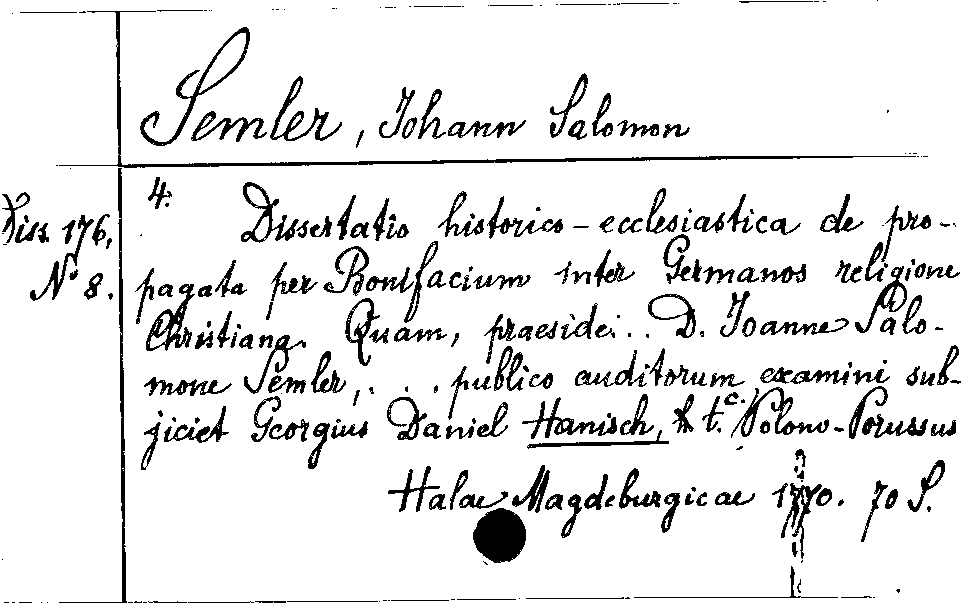 Semler, Johann Salomon
4.
Diss. 176,
No 8.
Dissertatio historico-ecclesiastica de pro-
pagata per Bonifacium inter Germanos religione
Christiana. Quam, praeside... D. Joanne Salo-
mone Semler,... publico auditorum examini sub-
jiciet Georgius Daniel Hanisch, t. Polono-Porussus
Halae Magdeburgicae 1770. 70 S.